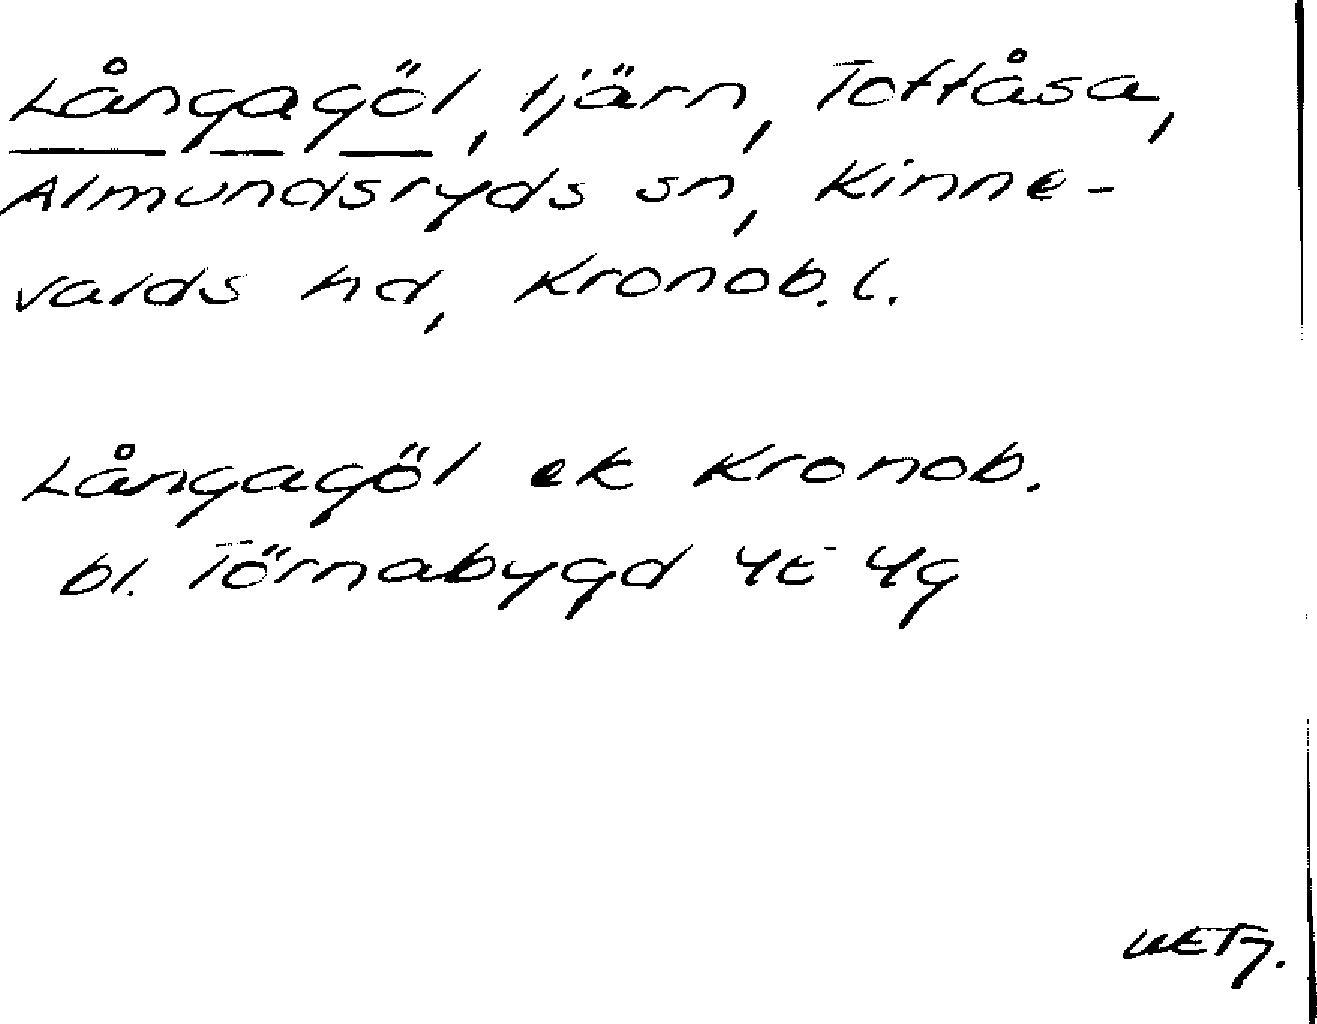 Långagöl, tjärn, Toftåsa,
Almundsryds sn, Kinne-
valds hd, Kronob. l.
Långagöl ek Kronob.
bl. Törnabygd 4E 4g